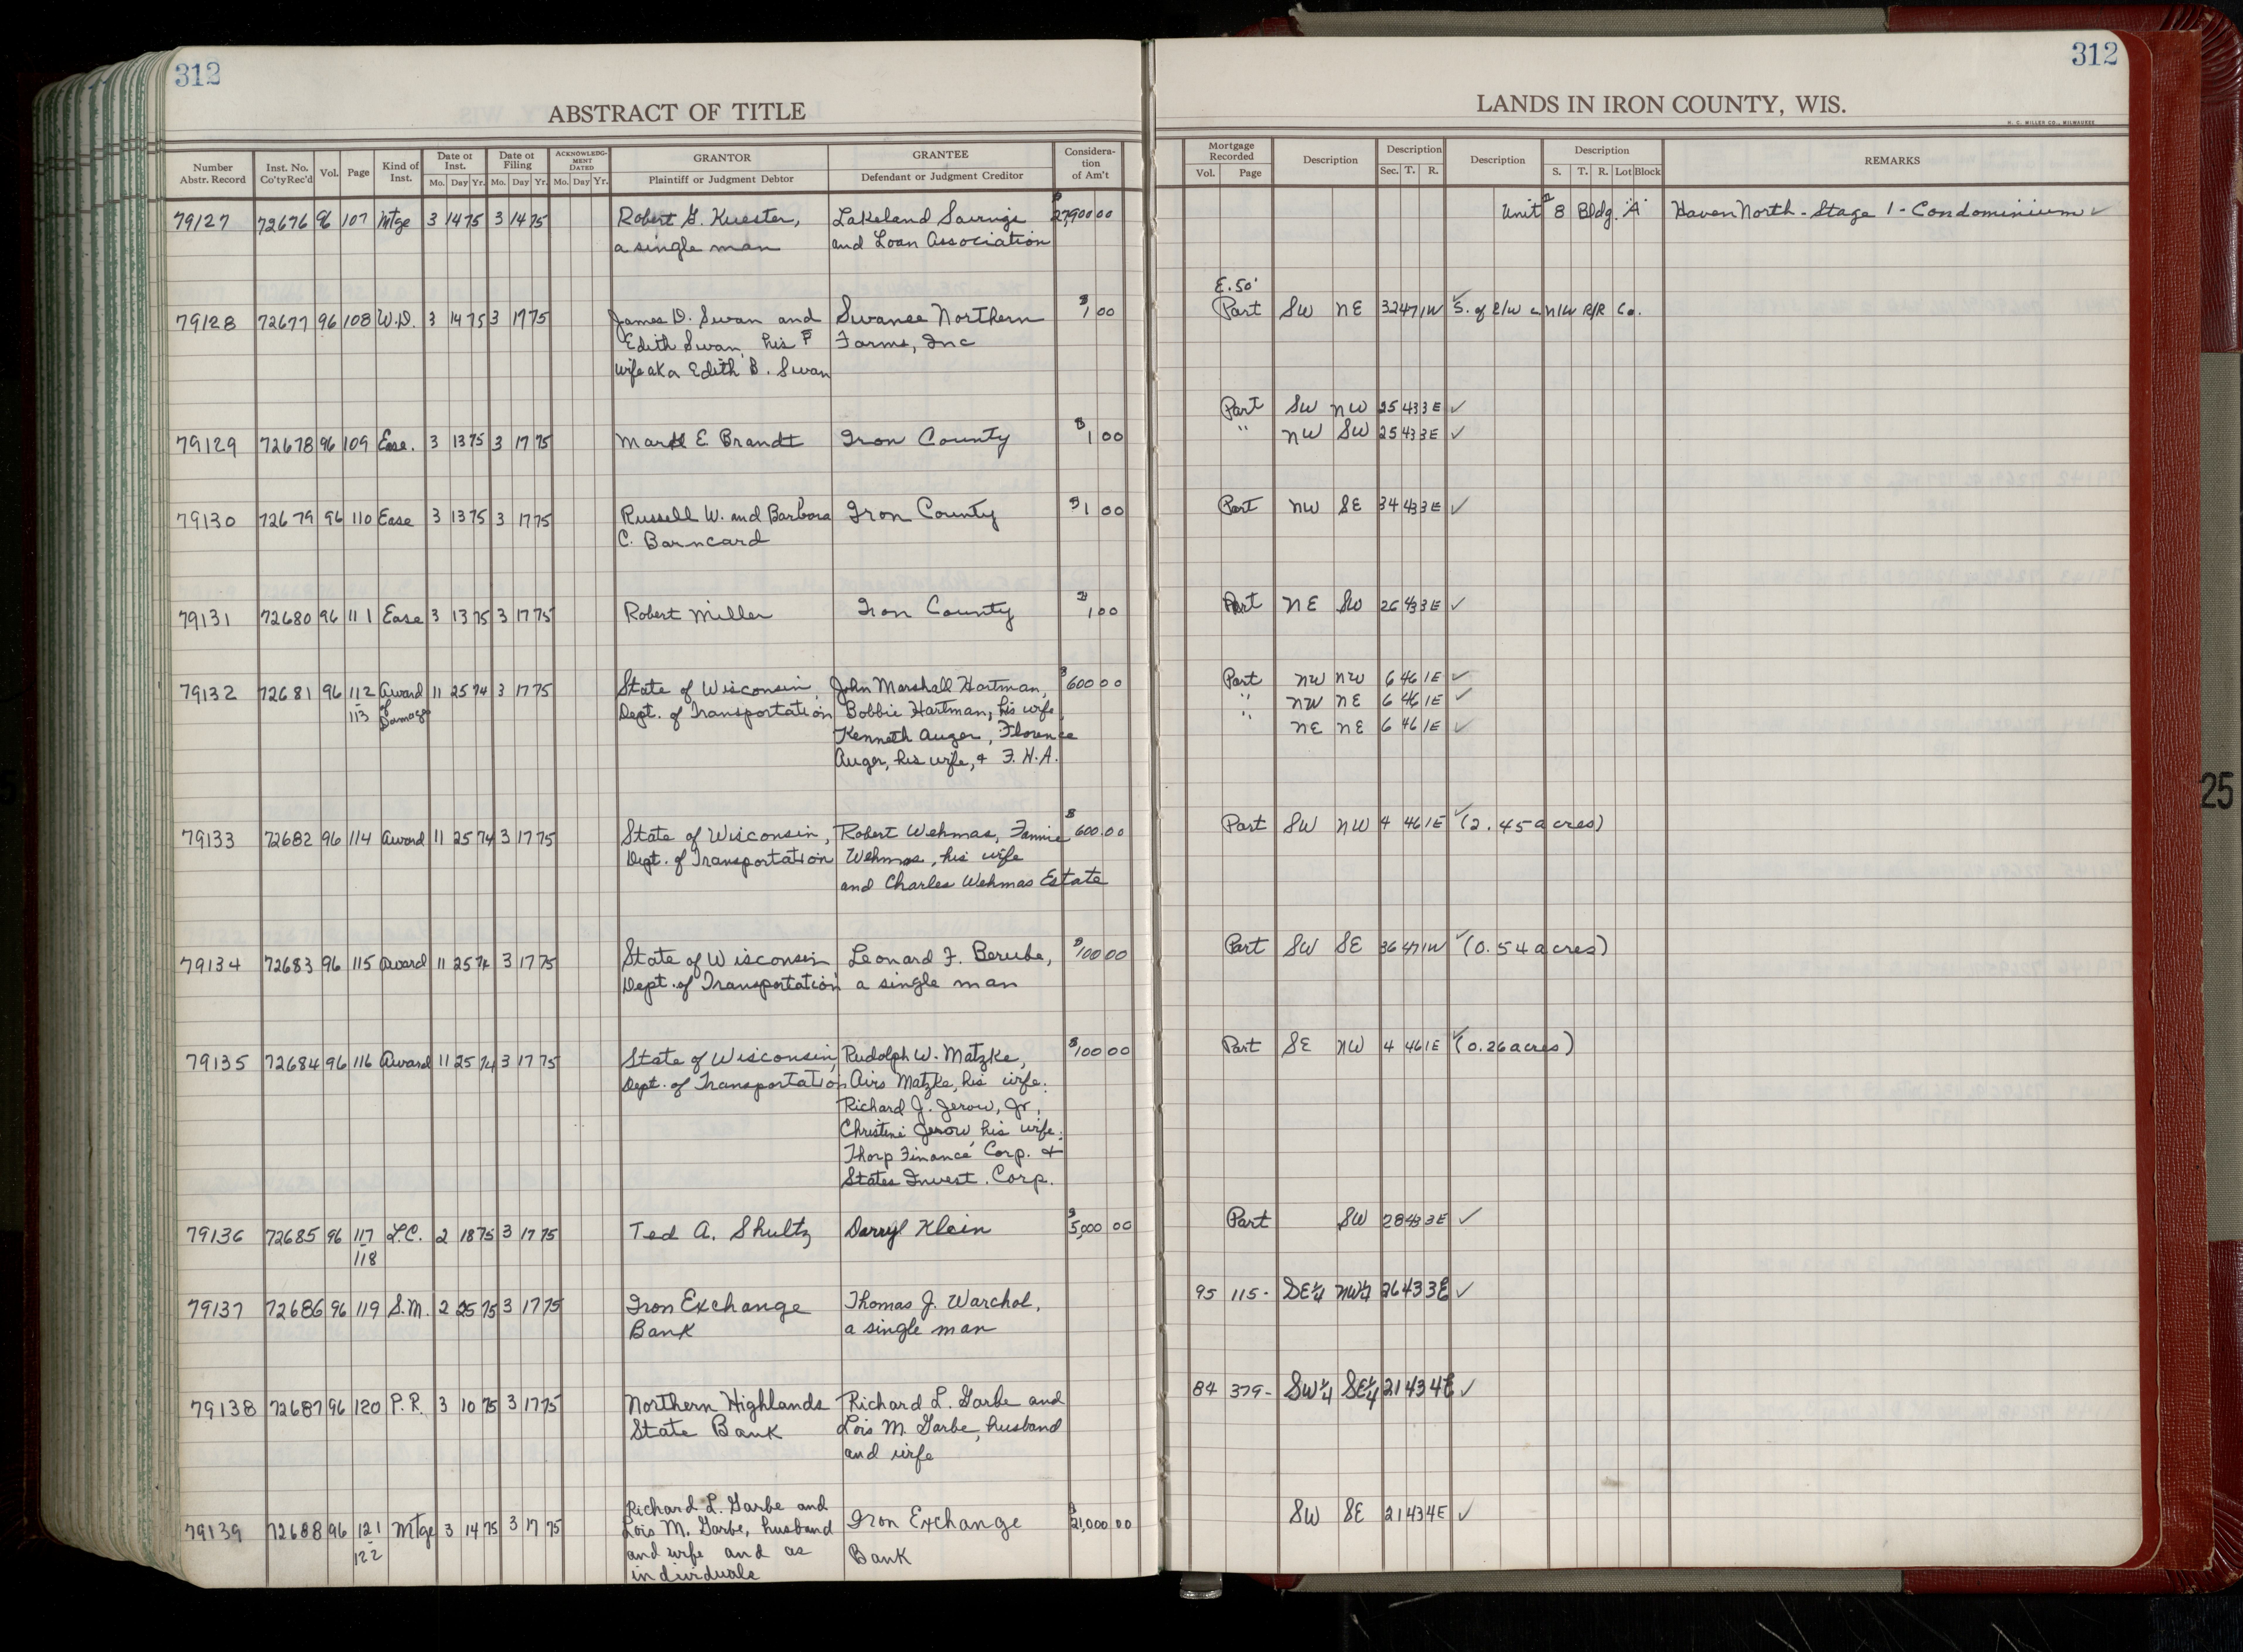 312
312
ABSTRACT OF TITLE
LANDS IN IRON COUNTY, WIS.
H. C. MILLER CO., MILWAUKEE
Number Abstr. Record | Inst. No. Co'ty Rec'd | Vol. | Page | Kind of Inst. | Date of Inst. Mo. Day Yr. | Date of Filing Mo. Day Yr. | ACKNOWLEDGMENT DATED Mo. Day Yr. | GRANTOR Plaintiff or Judgment Debtor | GRANTEE Defendant or Judgment Creditor | Consideration of Am't
Mortgage Recorded Vol. Page | Description | Description Sec. T. R. | Description | Description S. T. R. Lot Block | REMARKS
79127 72676 96 107 Mtge 3 14 75 3 14 75 Robert G. Kuester, Lakeland Savings $27,900 00 Unit # 8 Bldg. "A" Haven North - Stage 1 - Condominium ✓
a single man and Loan Association
E. 50'
79128 72677 96 108 W.D. 3 14 75 3 17 75 James D. Swan and Swanee Northern $1 00 Part SW NE 32 47 1W ✓ S. of R/W C N/W R/R Co.
Edith Swan, his Farms, Inc
wife aka Edith B. Swan
Part SW NW 25 43 3E ✓
79129 72678 96 109 Ease. 3 13 75 3 17 75 Mark E. Brandt Iron County $1 00 " NW SW 25 43 3E ✓
79130 72679 96 110 Ease 3 13 75 3 17 75 Russell W. and Barbara Iron County $1 00 Part NW SE 34 43 3E ✓
C. Barncard
79131 72680 96 111 Ease 3 13 75 3 17 75 Robert Miller Iron County $1 00 Part NE SW 26 43 3E ✓
79132 72681 96 112 Award 11 25 74 3 17 75 State of Wisconsin, John Marshall Hartman, $600 00 Part NW NW 6 46 1E ✓
- 113 of Damage Dept. of Transportation Bobbie Hartman, his wife, " NW NE 6 46 1E ✓
Kenneth Auger, Florence " NE NE 6 46 1E ✓
Auger, his wife, & F. H. A.
79133 72682 96 114 Award 11 25 74 3 17 75 State of Wisconsin, Robert Wehmas, Fannie $600 00 Part SW NW 4 46 1E ✓ (2.45 acres)
Dept. of Transportation Wehmas, his wife
and Charles Wehmas Estate
79134 72683 96 115 Award 11 25 74 3 17 75 State of Wisconsin Leonard F. Berube, $100 00 Part SW SE 36 47 1W ✓ (0.54 acres)
Dept. of Transportation a single man
79135 72684 96 116 Award 11 25 74 3 17 75 State of Wisconsin, Rudolph W. Matzke, $100 00 Part SE NW 4 46 1E ✓ (0.26 acres)
Dept. of Transportation Avis Matzke, his wife:
Richard J. Jerow, Jr.,
Christine Jerow, his wife:
Thorp Finance Corp. &
States Invest. Corp.
79136 72685 96 117 L.C. 2 18 75 3 17 75 Ted A. Shultz Darryl Klein $5,000 00 Part SW 28 43 3E ✓
- 118
79137 72686 96 119 S.M. 2 25 75 3 17 75 Iron Exchange Thomas J. Warchol, 95 115 - SE¼ NW¼ 26 43 3E ✓
Bank a single man
79138 72687 96 120 P.R. 3 10 75 3 17 75 Northern Highlands Richard L. Garbe and 84 379 - SW¼ SE¼ 21 43 4E ✓
State Bank Lois M. Garbe, husband
and wife
79139 72688 96 121 Mtge 3 14 75 3 17 75 Richard L. Garbe and Iron Exchange $21,000 00 SW SE 21 43 4E ✓
- 122 Lois M. Garbe, husband Bank
and wife and as
individuals
25